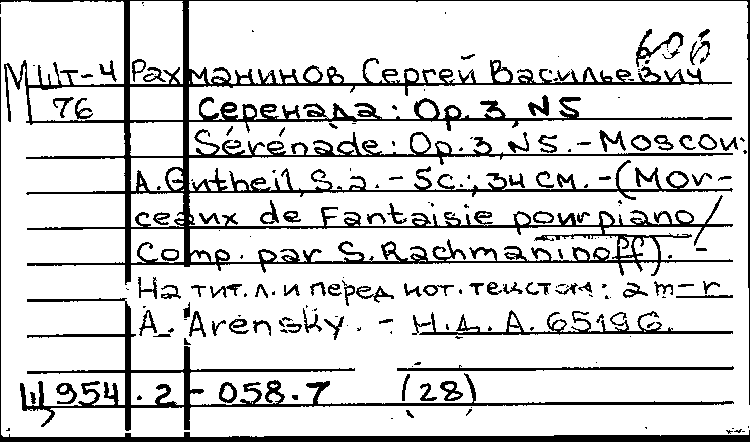 606
М Шт-4 Рахманинов, Сергей Васильевич
76 Серенада: Op. 3, N5
Sérénade: Op. 3, N5. - Moscou:
A. Gutheil, S. a. - 5с.; 34 см. - (Mor-
ceaux de Fantaisie pour piano /
Comp. par S. Rachmaninoff). -
На тит. л. и перед нот. текстом: a m-r
A. Arensky. - Н.д. A. 6519 G.
Щ954.2-058.7 (28)